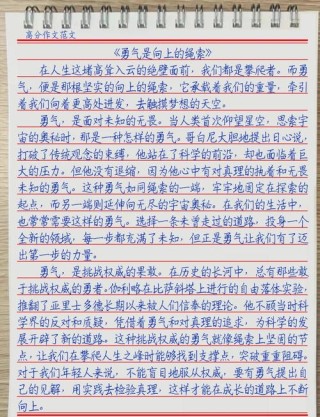 高分作文范文
《勇气是向上的绳索》
在人生这堵高耸入云的绝壁面前，我们都是攀爬者。而勇
气，便是那根坚实的向上的绳索，它承载着我们的重量，牵引
着我们向着更高处进发，去触摸梦想的天空。
勇气，是面对未知的无畏。当人类首次仰望星空，思索宇
宙的奥秘时，那是一种怎样的勇气。哥白尼大胆地提出日心说，
打破了传统观念的束缚，他站在了科学的前沿，却也面临着巨
大的压力。但他没有退缩，因为他心中有对真理的执着和无畏
未知的勇气。这种勇气如同绳索的一端，牢牢地固定在探索的
起点，而另一端则延伸向无尽的宇宙奥秘。在我们的生活中，
也常常需要这样的勇气。选择一条未曾走过的道路，投身一个
全新的领域，每一步都充满了未知，但正是勇气让我们有了迈
出第一步的力量。
勇气，是挑战权威的果敢。在历史的长河中，总有那些敢
于挑战权威的勇者。伽利略在比萨斜塔上进行的自由落体实验，
推翻了亚里士多德长期以来被人们信奉的理论。他不顾当时科
学界的反对和质疑，凭借着勇气和对真理的追求，为科学的发
展开辟了新的道路。这种挑战权威的勇气就像绳索上坚固的节
点，让我们在攀爬人生之峰时能够找到支撑点，突破重重阻碍。
对于我们年轻人来说，不能盲目地服从权威，要有勇气提出自
己的见解，用实践去检验真理，这样才能在成长的道路上不断
向上。